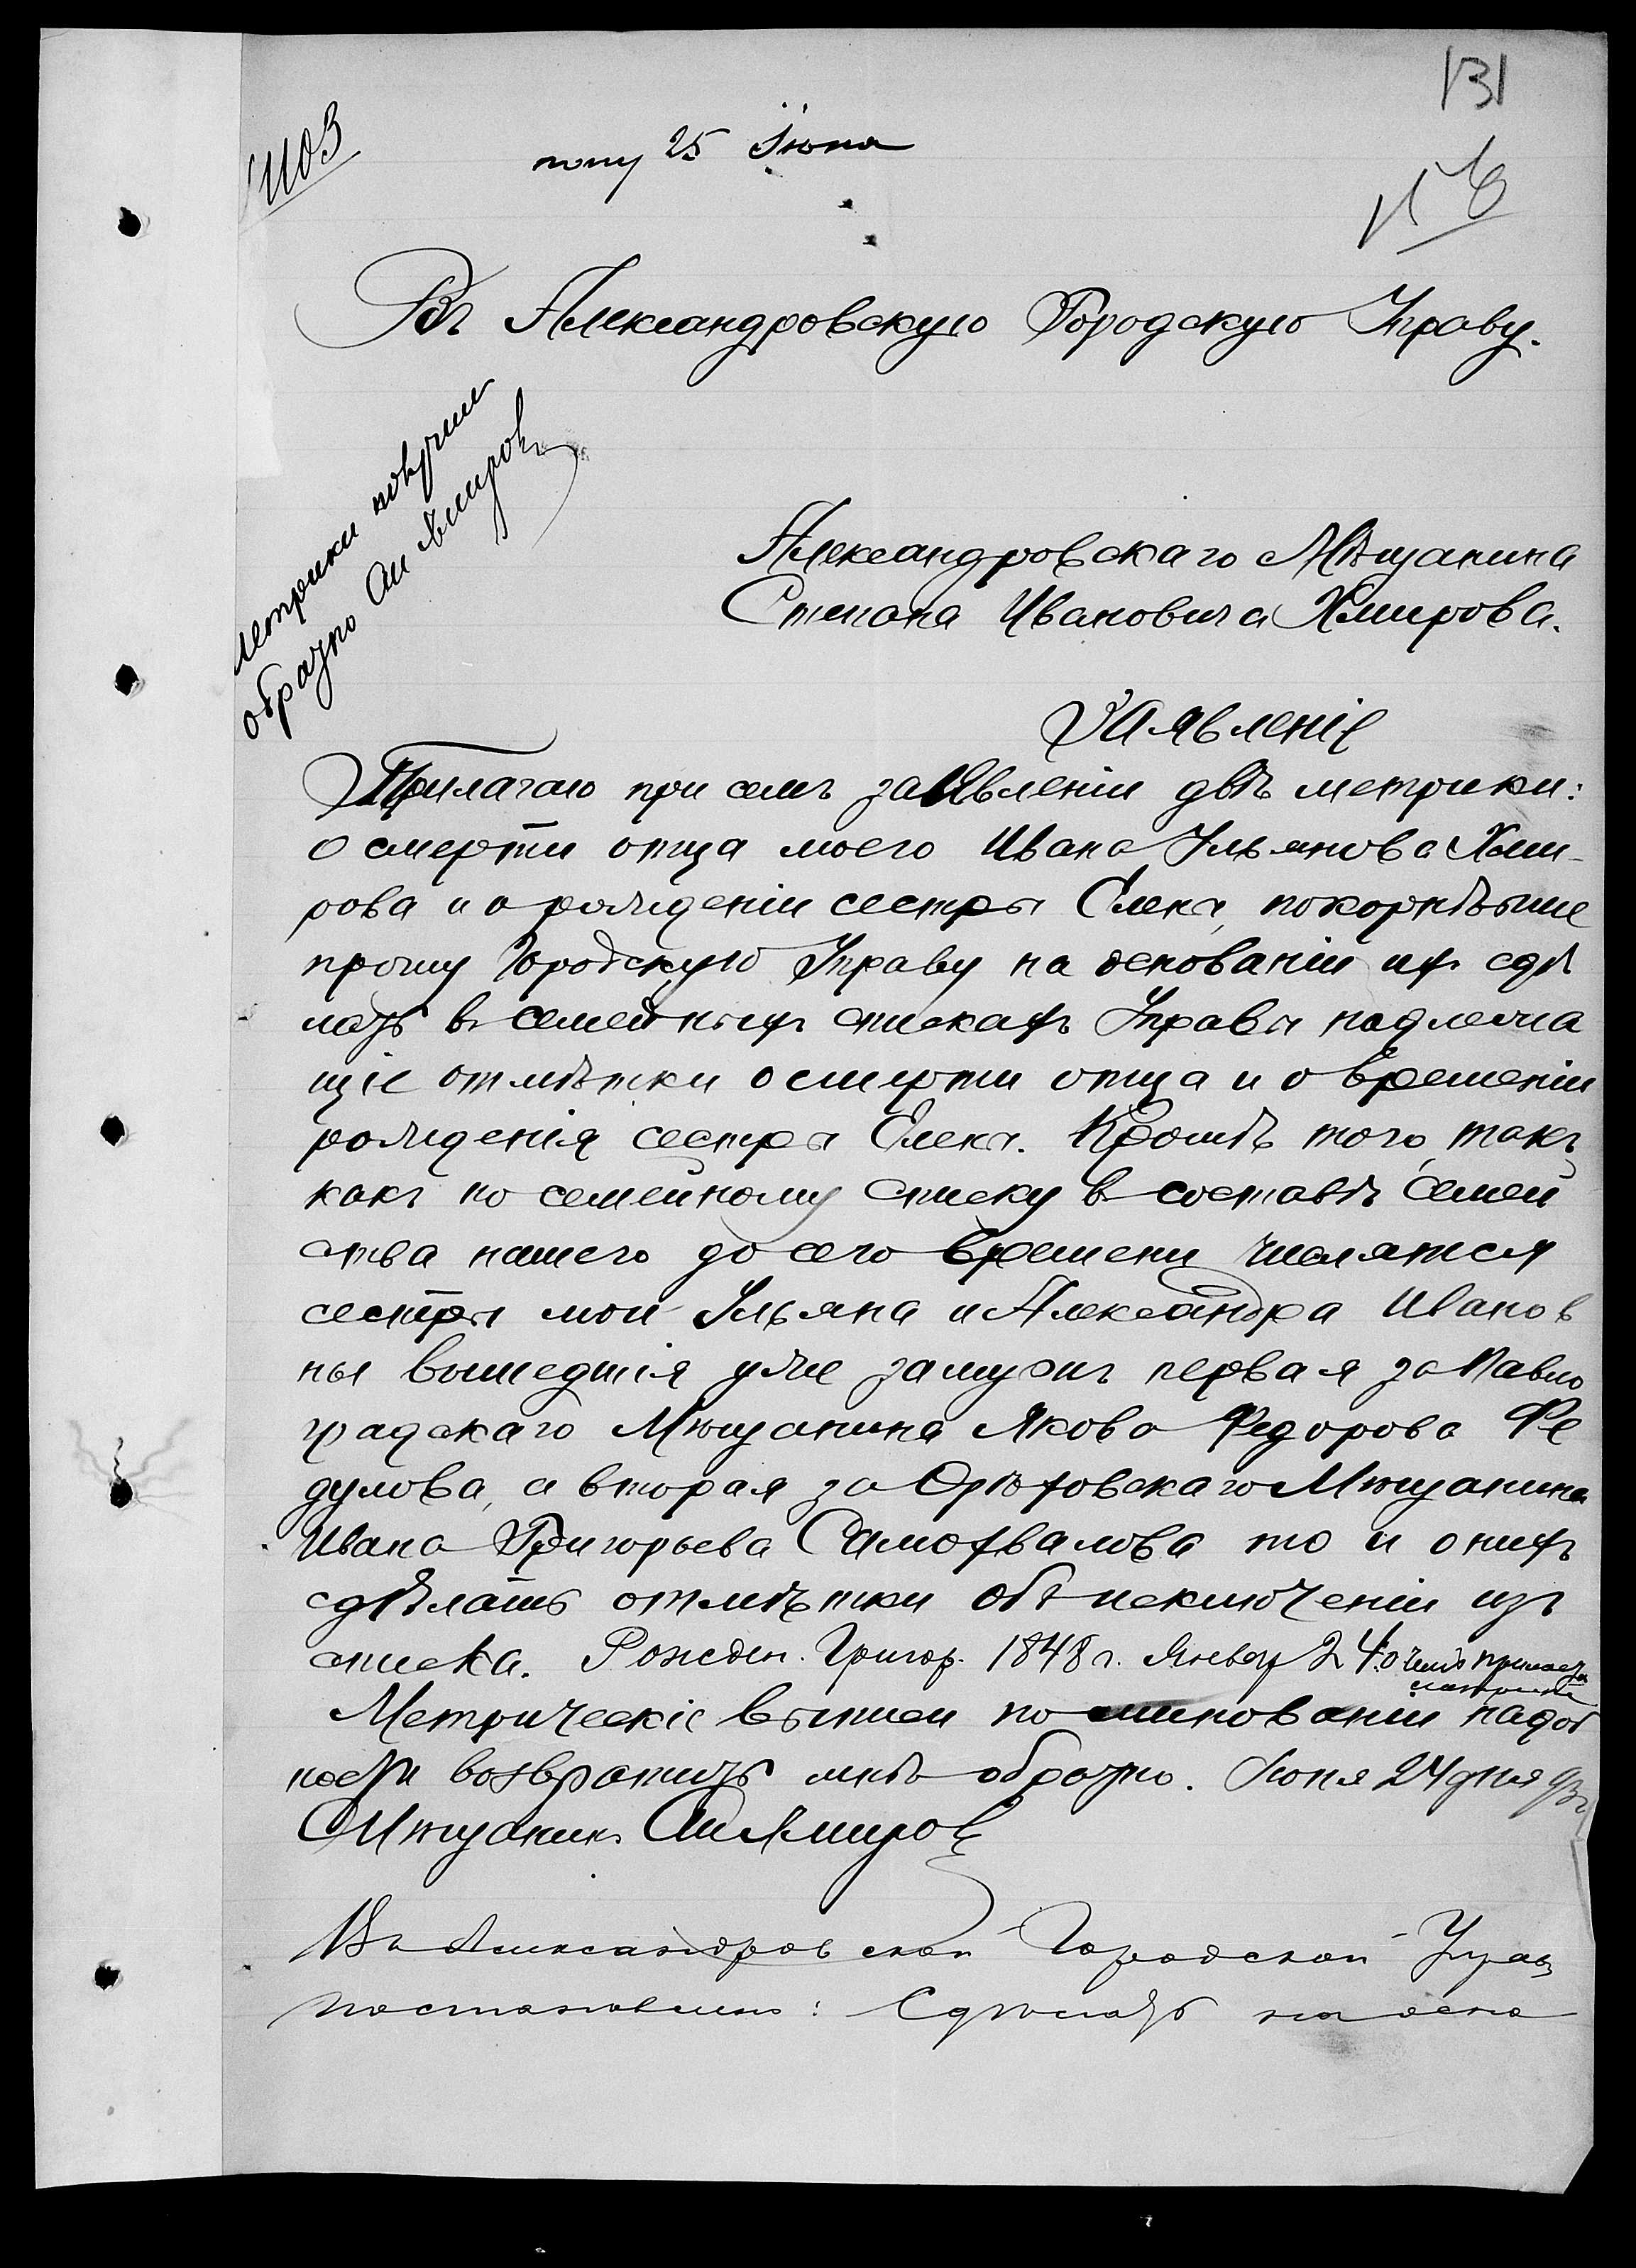 131
1103
полу 25 Іюня
Въ Александровскую Городскую Управу.
Метрики получилъ
обратно Ст Хмировъ
Александровскаго Мѣщанина
Степана Ивановича Хмирова.
Заявленіе
Прилагаю при семъ заявленіи двѣ метрики:
о смерти отца моего Ивана Ульянова Хми-
рова и о рожденіи сестры Елены, покорнѣйше
прошу Городскую Управу на основаніи ихъ сдѣ
лать въ семейныхъ спискахъ Управы надлежа
щіе отмѣтки о смерти отца и о времѣни
рожденія сестры Елены. Кромѣ того, такъ
какъ по семейному списку въ составѣ семей
ства нашего до сего времени числятся
сестры мои Ульяна и Александра Иванов
ны вышедшія уже замужъ первая за Павло
градскаго Мѣщанина Якова Федорова Фе
дулова, а вторая за Орѣховскаго Мѣщанина
Ивана Григорьева Самохвалова то и о нихъ
сдѣлать отмѣтки объ исключеніи изъ
списка. Рожден. Григор. 1848 г. Январ 24. о чемъ
Метрическіе выписи по миновании надоб
ности возвратить мнѣ обратно. Июня 24 дня
Мѣщанинъ Ст Хмировъ
Въ Александровской Городской Управ
постановлено: Сдѣлать на осно